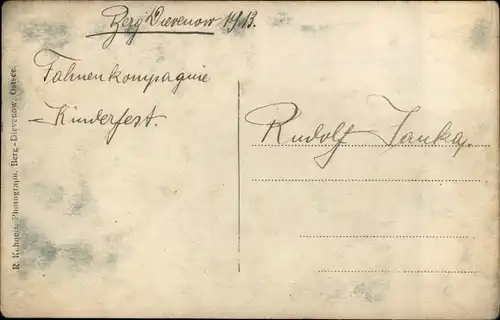 Berg Dievenow 1913.
Fahnenkompagnie
Kinderfest.
Rudolf
Photograph, Berg-Dievenow, Ostsee.